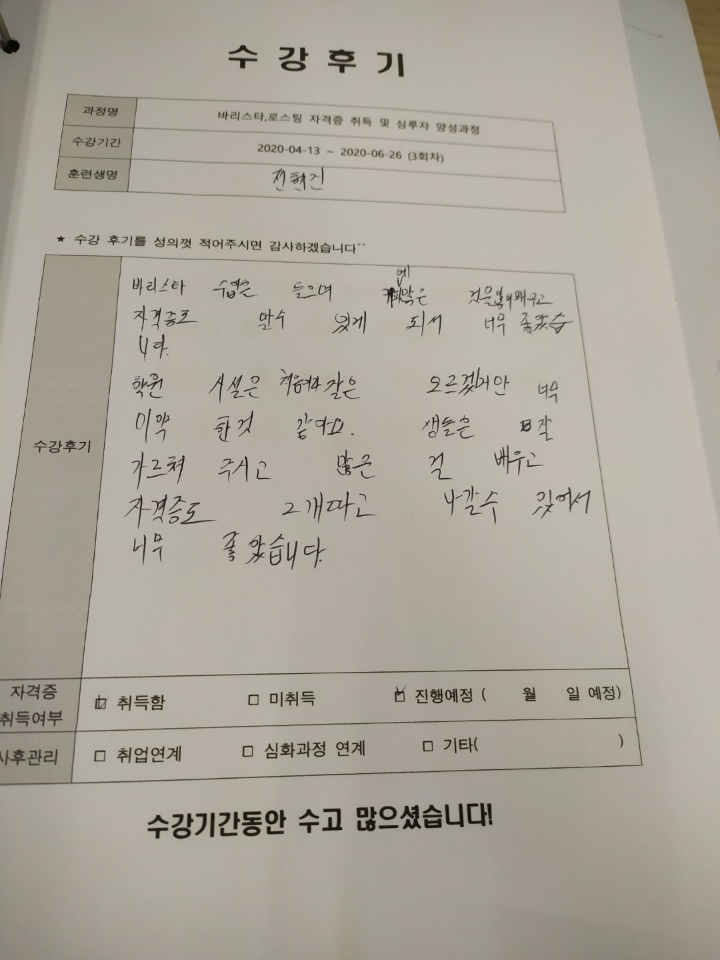 수강후기
과정명 바리스타,로스팅 자격증 취득 및 실무자 양성과정
수강기간 2020-04-13 ~ 2020-06-26 (3회차)
훈련생명 전현건
★ 수강 후기를 성의껏 적어주시면 감사하겠습니다^^
바리스타 수업은 들으며 많은 것을 배우고
자격증도 딸수 있게 되서 너무 좋았습
니다.
학원 시설은 같은 모르겠지만 너무
한것 같아요. 쌤들은 잘
수강후기
가르쳐 주시고 많은 걸 배우고
자격증도 2개따고 나갈수 있어서
너무 좋았습니다.
자격증 취득여부 ☑ 취득함 □ 미취득 ☑ 진행예정 ( 월 일 예정)
사후관리 □ 취업연계 □ 심화과정 연계 □ 기타( )
수강기간동안 수고 많으셨습니다!